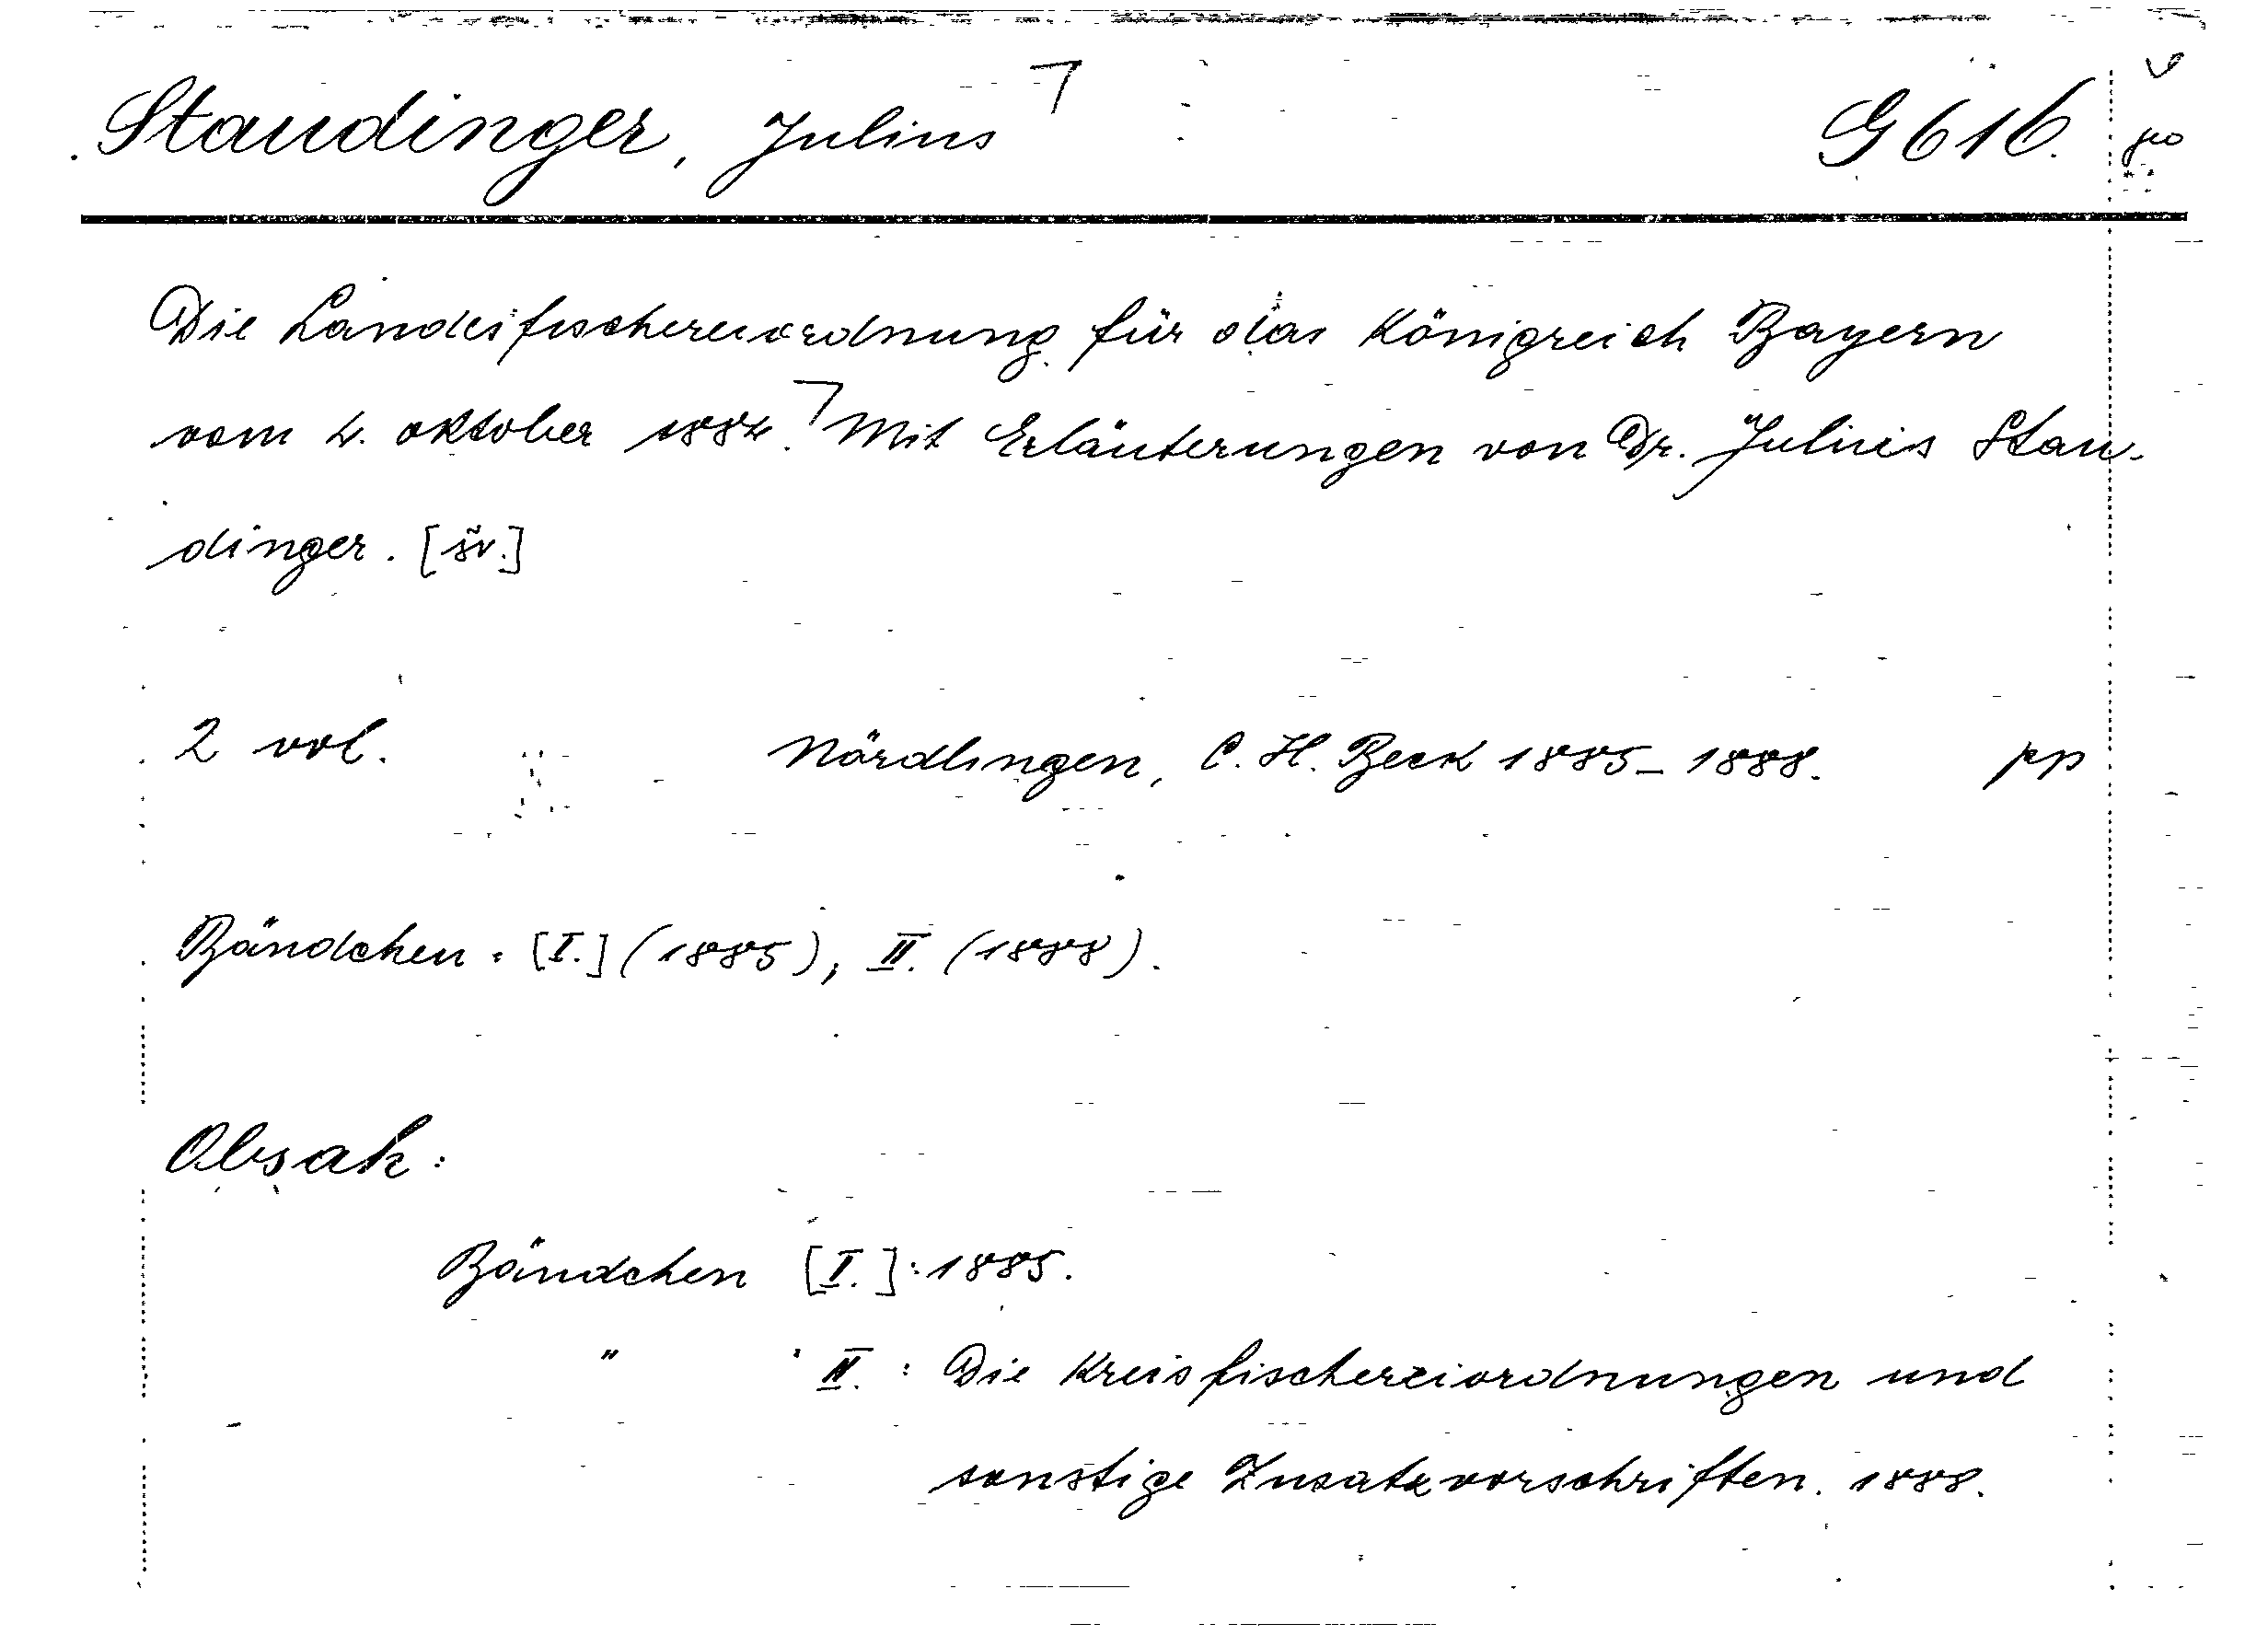 Staudinger, Julius ㄱ G 616.
Die Landesfischereiordnung für das Königreich Bayern
vom 4. oktober 1884. ㄱ Mit Erläuterungen von Dr. Julius Stau-
dinger. [šv.]
2 vol. Nördlingen, C. H. Beck 1885-1888. pp
Bändchen: [I.] (1885), II. (1888).
Obsah:
Bändchen [I.]: 1885.
" II.: Die Kreisfischereiordnungen und
sonstige Zusatzvorschriften. 1888.